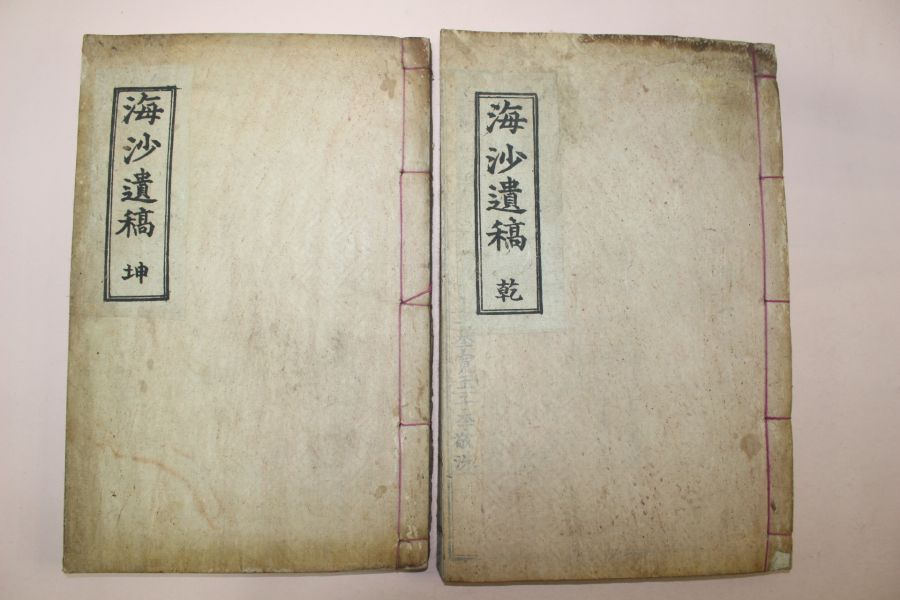 海沙遺稿 乾
海沙遺稿 坤